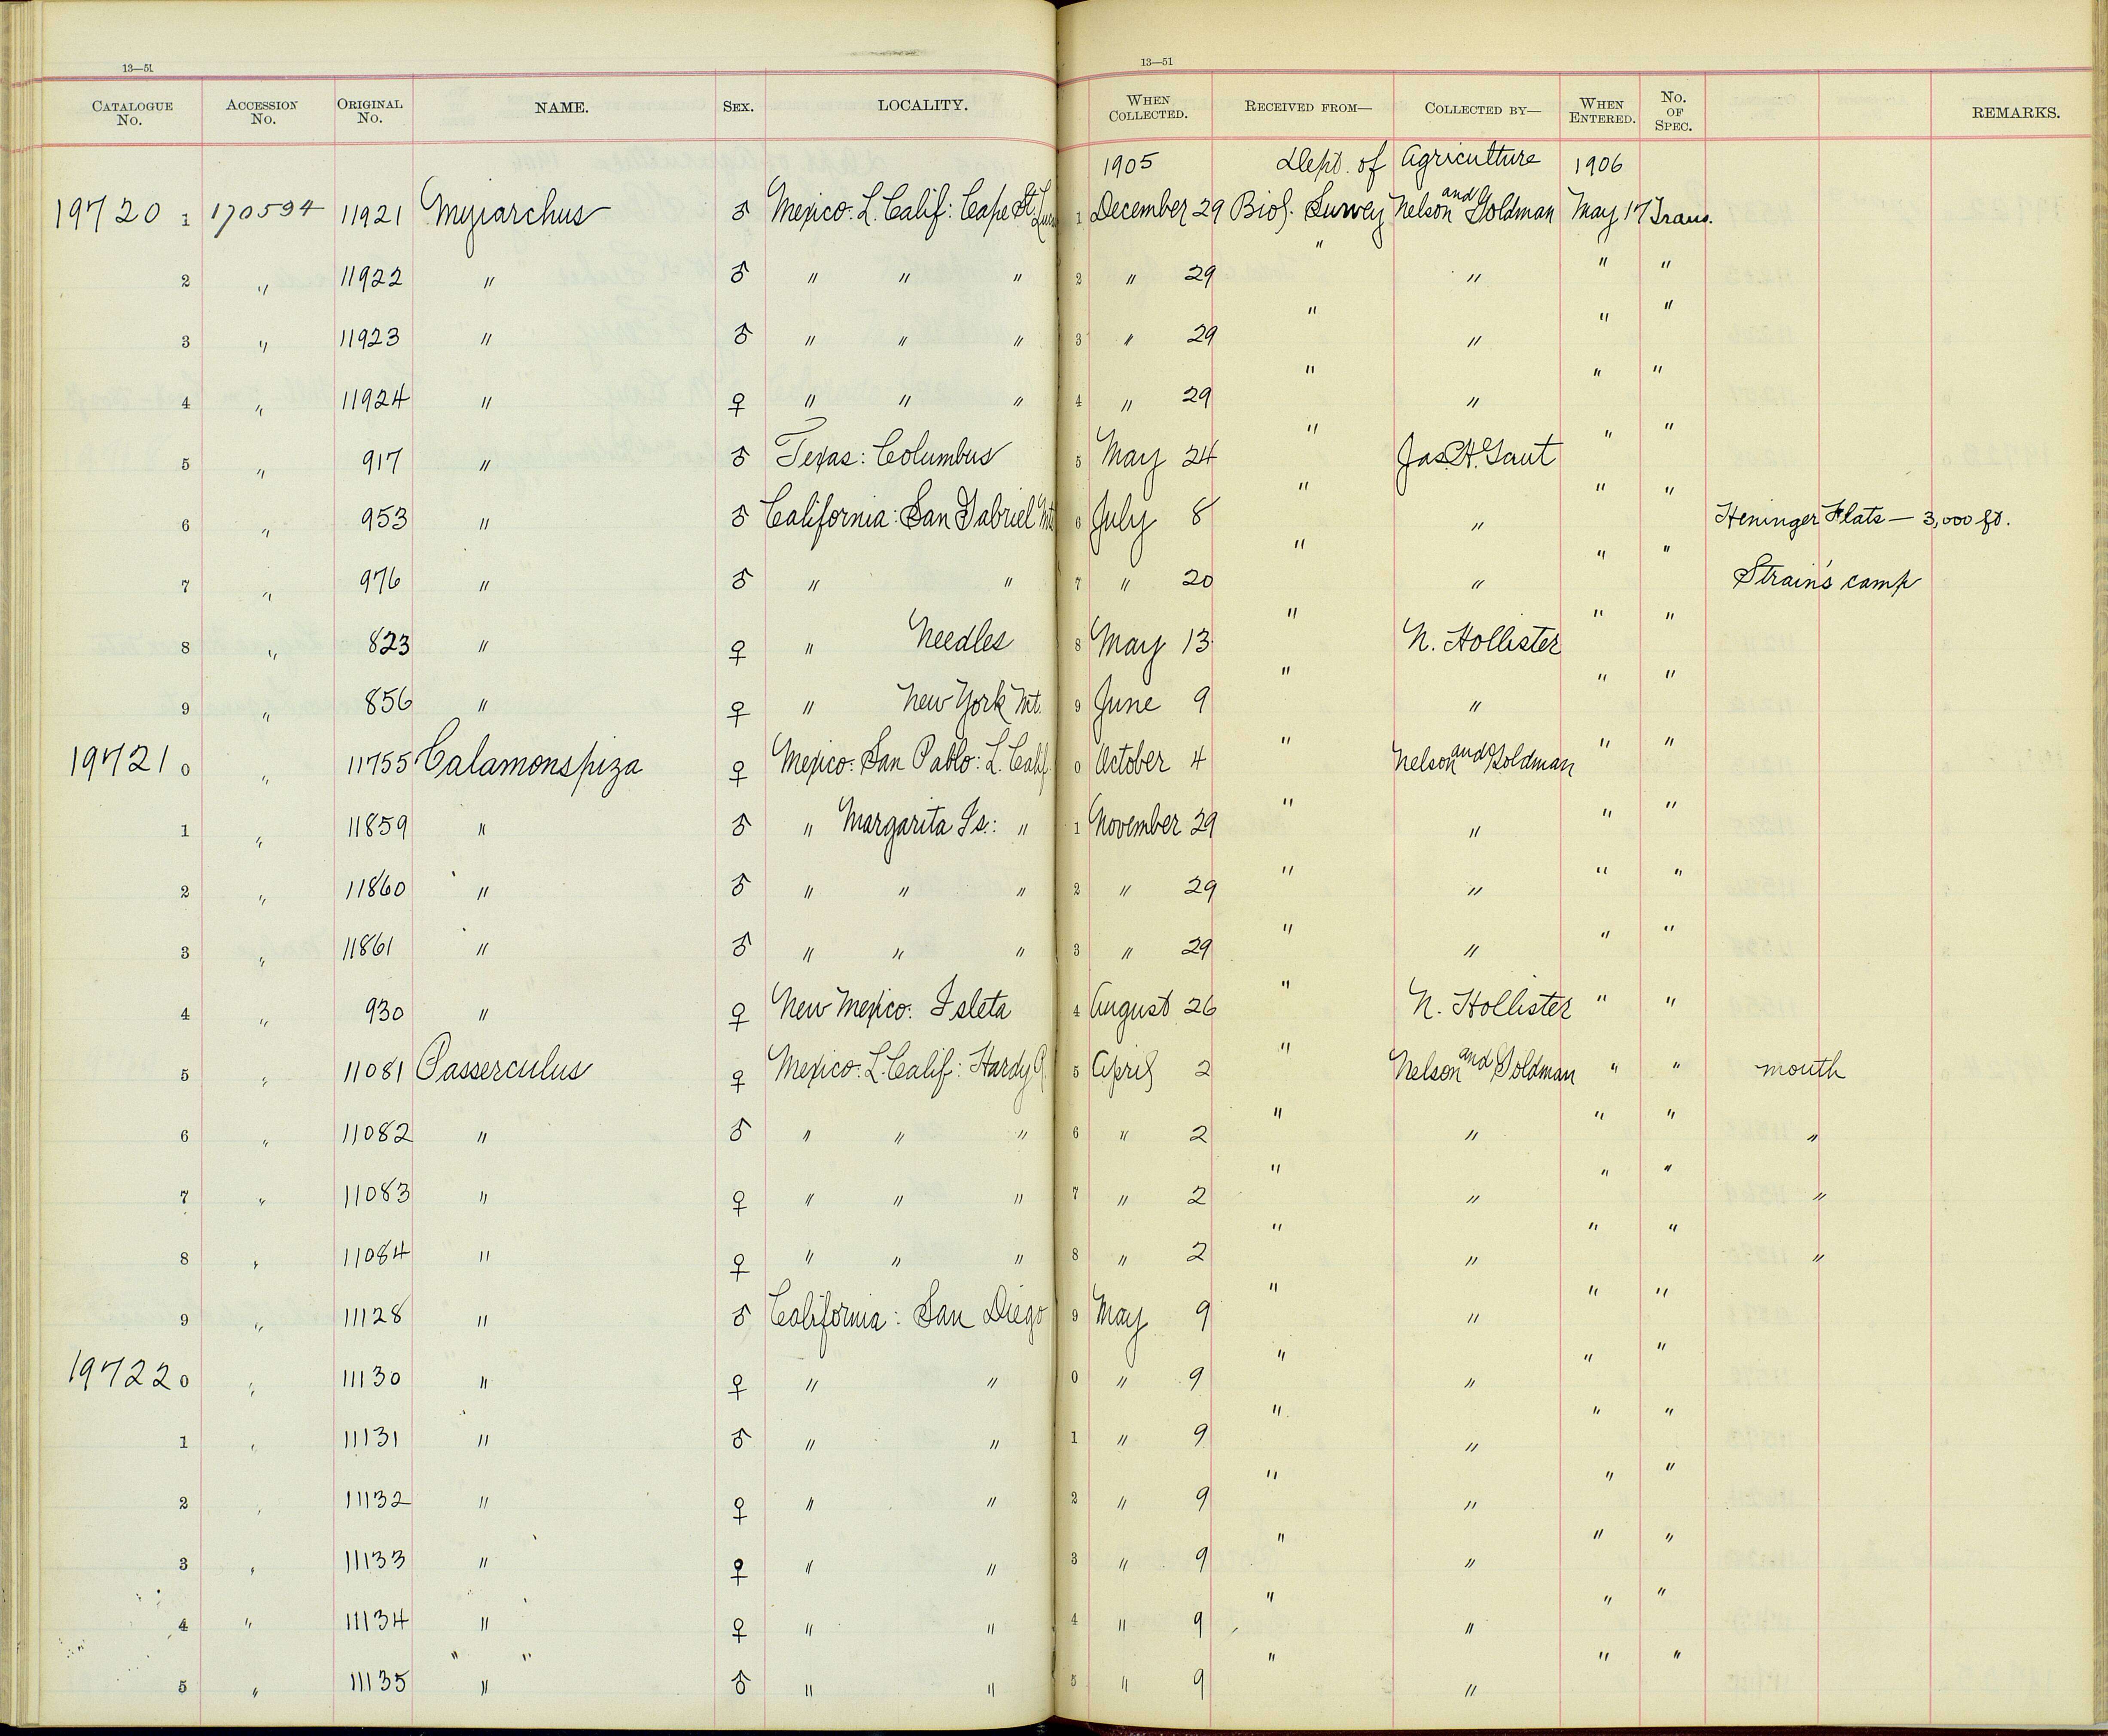 13—51 13—51
CATALOGUE No. ACCESSION No. ORIGINAL No. NAME. SEX. LOCALITY. WHEN COLLECTED. RECEIVED FROM— COLLECTED BY— WHEN ENTERED. No. OF SPEC. REMARKS.
1905 Dept. of Agriculture 1906
19720 1 170594 11921 Myiarchus ♂ Mexico: L. Calif: Cape St. 1 December 29 Biol. Survey Nelson and Goldman May 17 Trans.
2 " 11922 " ♂ " " " 2 " 29 " " " "
3 " 11923 " ♂ " " " 3 " 29 " " " "
4 " 11924 " ♀ " " " 4 " 29 " " " "
5 " 917 " ♂ Texas: Columbus 5 May 24 " Jas. H. Gaut " "
6 " 953 " ♂ California: San Gabriel Mts 6 July 8 " " " " Heninger Flats — 3,000 ft.
7 " 976 " ♂ " " 7 " 20 " " " " Strain's camp
8 " 823 " ♀ " Needles 8 May 13 " N. Hollister " "
9 " 856 " ♀ " New York Mt. 9 June 9 " " " "
19721 0 " 11755 Calamonspiza ♀ Mexico: San Pablo: L. Calif. 0 October 4 " Nelson and Goldman " "
1 " 11859 " ♂ " Margarita Is.: " 1 November 29 " " " "
2 " 11860 " ♂ " " " 2 " 29 " " " "
3 " 11861 " ♂ " " " 3 " 29 " " " "
4 " 930 " ♀ New Mexico: Isleta 4 August 26 " N. Hollister " "
5 " 11081 Passerculus ♀ Mexico: L. Calif: Hardy R. 5 April 2 " Nelson and Goldman " " mouth
6 " 11082 " ♂ " " " 6 " 2 " " " " "
7 " 11083 " ♀ " " " 7 " 2 " " " " "
8 " 11084 " ♀ " " " 8 " 2 " " " " "
9 " 11128 " ♂ California: San Diego 9 May 9 " " " "
19722 0 " 11130 " ♀ " " 0 " 9 " " " "
1 " 11131 " ♂ " " 1 " 9 " " " "
2 " 11132 " ♀ " " 2 " 9 " " " "
3 " 11133 " ♀ " " 3 " 9 " " " "
4 " 11134 " ♀ " " 4 " 9 " " " "
5 " 11135 " ♂ " " 5 " 9 " " " "